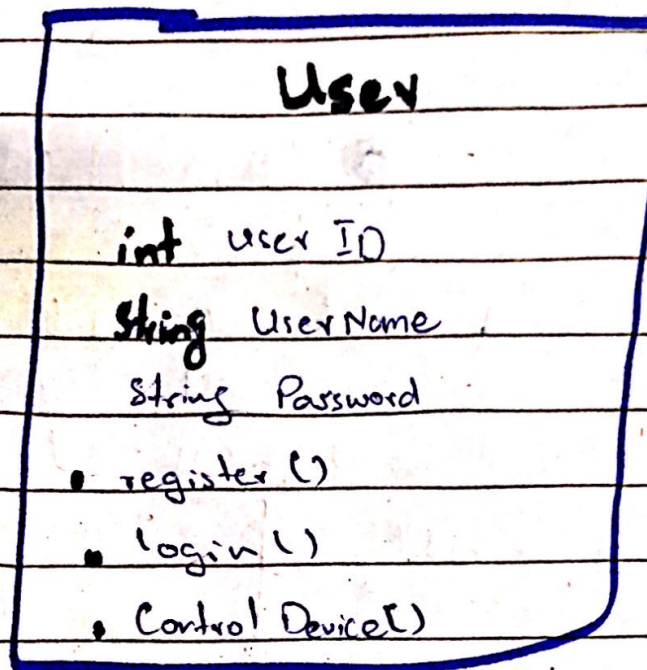 User
int user ID
String UserName
String Password
• register ()
• login ()
• Control Device()